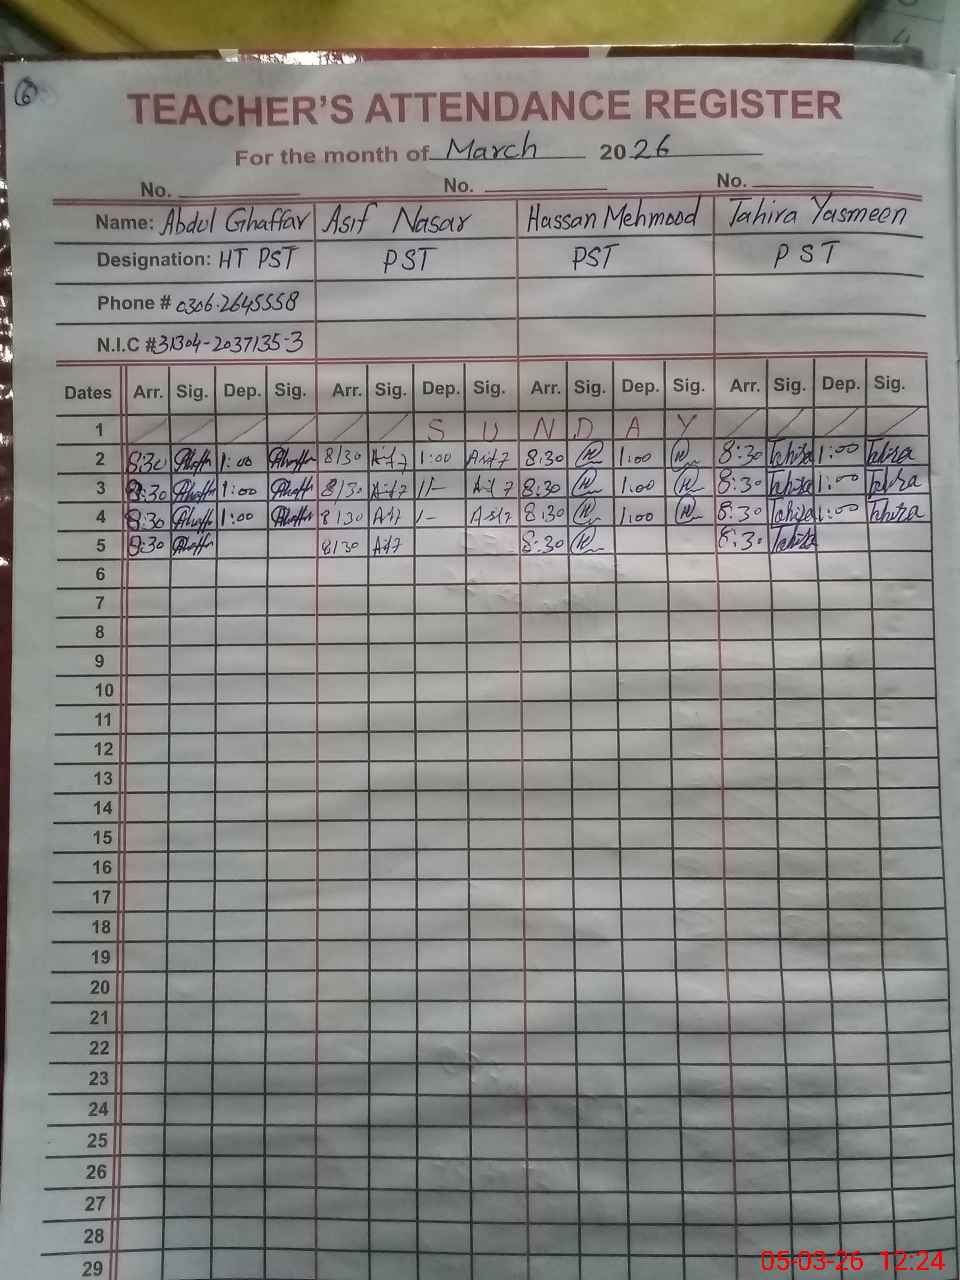 6
TEACHER'S ATTENDANCE REGISTER
For the month of March 2026
No. No. No.
Name: Abdul Ghaffar Asif Nasar Hassan Mehmood Tahira Yasmeen
Designation: HT PST PST PST PST
Phone # 0306-2645558
N.I.C # 31304-2037135-3
Dates Arr. Sig. Dep. Sig. Arr. Sig. Dep. Sig. Arr. Sig. Dep. Sig. Arr. Sig. Dep. Sig.
1 S U N D A Y
2 8:30 1:00 8/30 Asif 1:00 Asif 8:30 1:00 8:30 Tahira 1:00 Tahira
3 8:30 1:00 8/30 Asif 1/- Asif 8:30 1:00 8:30 Tahira 1:00 Tahira
4 8:30 1:00 8/30 Asif 1- Asif 8:30 1:00 8:30 Tahira 1:00 Tahira
5 8:30 8/30 Asif 8:30 8:30 Tahira
6
7
8
9
10
11
12
13
14
15
16
17
18
19
20
21
22
23
24
25
26
27
28
29
05-03-26 12:24